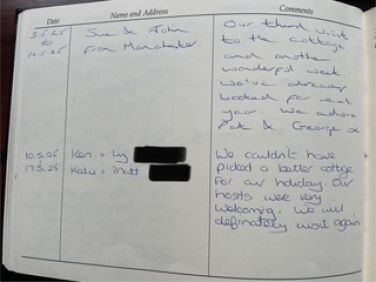 Date Name and Address Comments
3.5.25 Sue & John Our third visit
to from Manchester. to the cottage
10.5.25 and another
wonderful week
We've already
booked for next
year. We adore
Pat & George x
10.5.25 Ken + Liz We couldn't have
17.5.25 Katie + Matt picked a better cottage
for our holiday. Our
hosts were very
welcoming. We will
definately visit again.